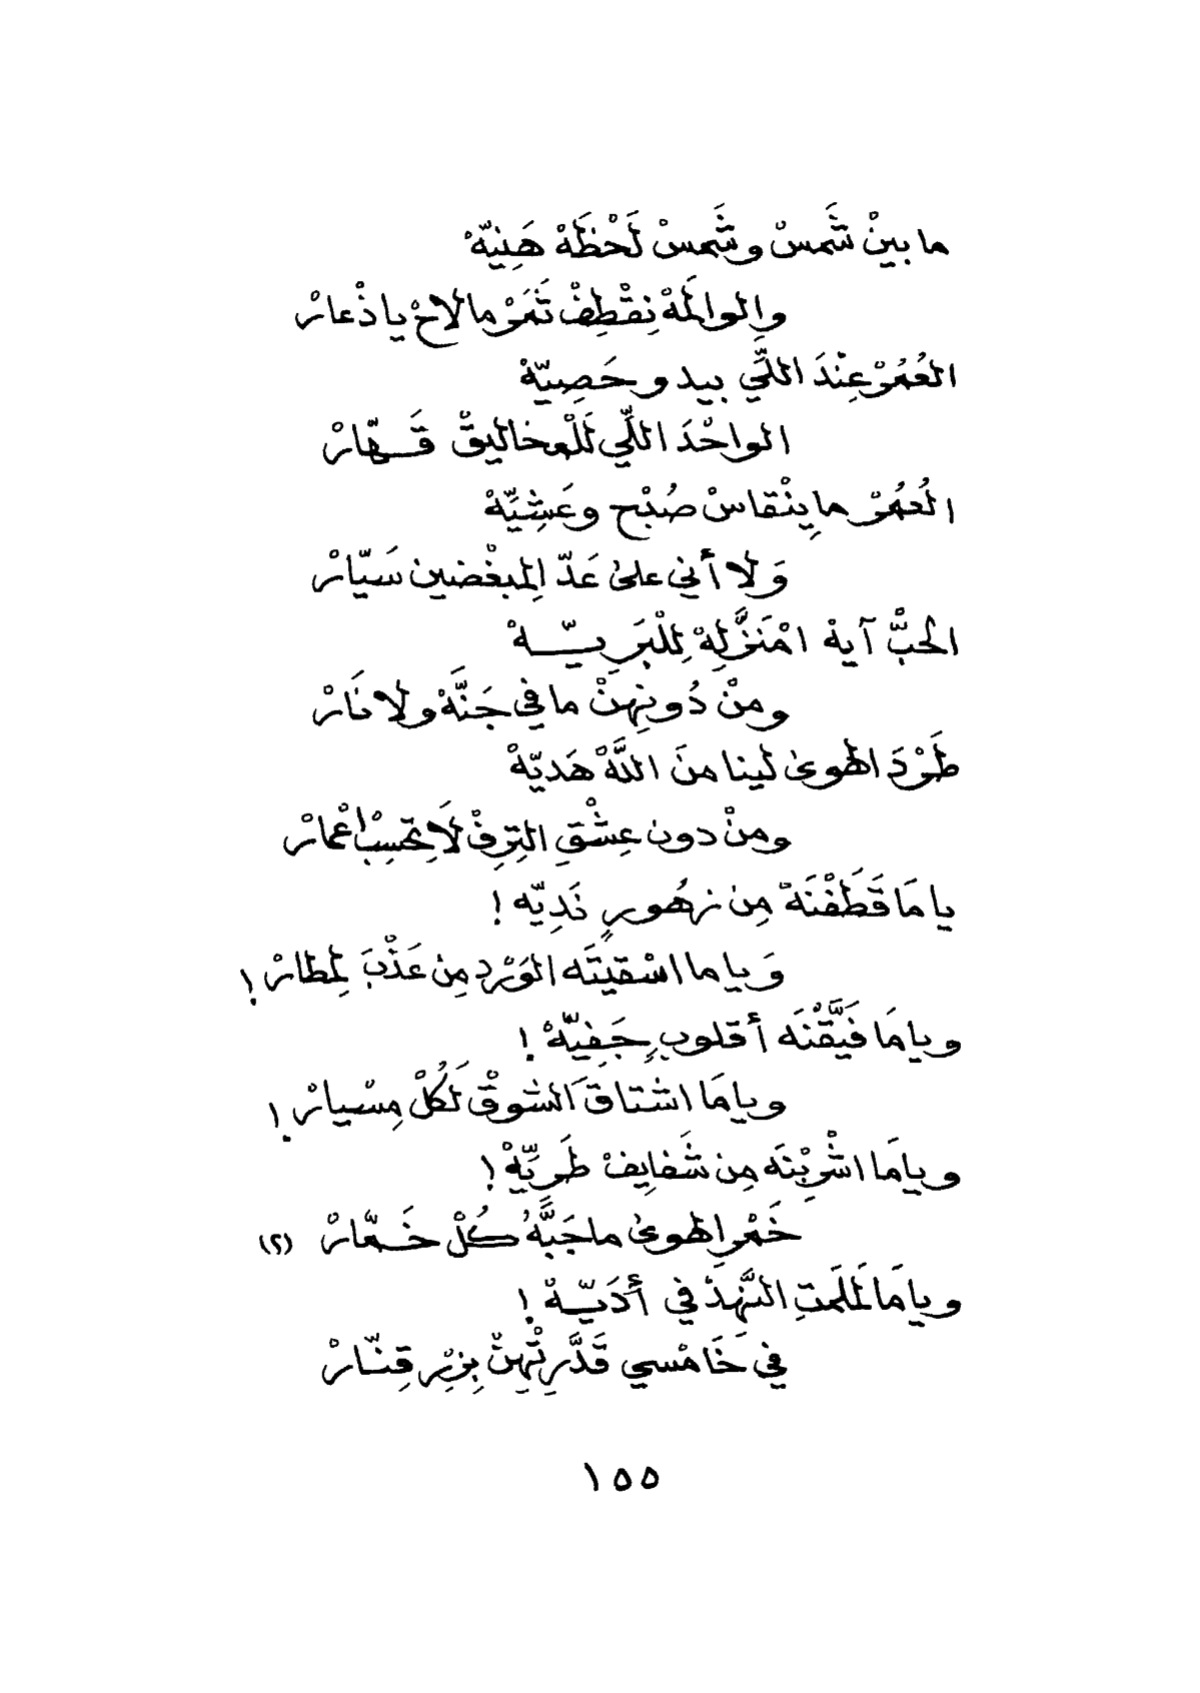 ما بينْ شَمسْ وشَمسْ لَحْظَهْ هَنِيّهْ
والوالمَهْ نِقْطِفْ ثَمَرْ مالاحْ يا ذْعارْ
العُمُرْ عِنْدَ اللّي بيدو حَصِيّهْ
الواحْدَ اللّي لَلْمخاليقْ قَـهّارْ
العُمُرْ ما يِنْقاسْ صُبْح وعَشِيِّهْ
وَلا أني على عَدّ اِلمبغْضين سَيّارْ
الحبّْ آيهْ امْنَزَّلِهْ لِلْبَرِيّـــهْ
ومنْ دُونِهنْ ما في جَنَّهْ ولا نَارْ
طَرْدَ الهوى لينا منَ اللَّهْ هَديّهْ
ومنْ دون عِشْقِ التِرِفْ لاَ تحْسِبْ اعْمارْ
يا مَا قَطَفْنَهْ مِن زهُورٍ نَدِيّه !
وَ ياما اسْقيتَه الوَرْد مِن عَذْبَ لمطارْ !
وياما فَيَّقْنَه أقلوبٍ جَفِيّهْ !
وياما اشتاقَ الشوقْ لَكُلْ مِسْيارْ !
وياما اشْرِبْنَه مِن شَفايِفْ طَرِيِّهْ !
خَمْرِ الهوى ماجَبَّهُ كُلْ خَـمّارْ (٢)
وياما لملَمتِ النَّهدْ في أَدَيّـهْ !
في خَامْسي قَدَّرِتْهِنْ بِزِرْ قِنّـارْ
١٥٥